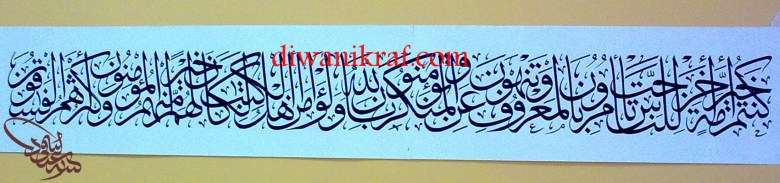 diwanikraf.com
كنتم خير أمة أخرجت للناس تأمرون بالمعروف وتنهون عن المنكر وتؤمنون بالله ولو آمن أهل الكتاب لكان خيرا لهم منهم المؤمنون وأكثرهم الفاسقون